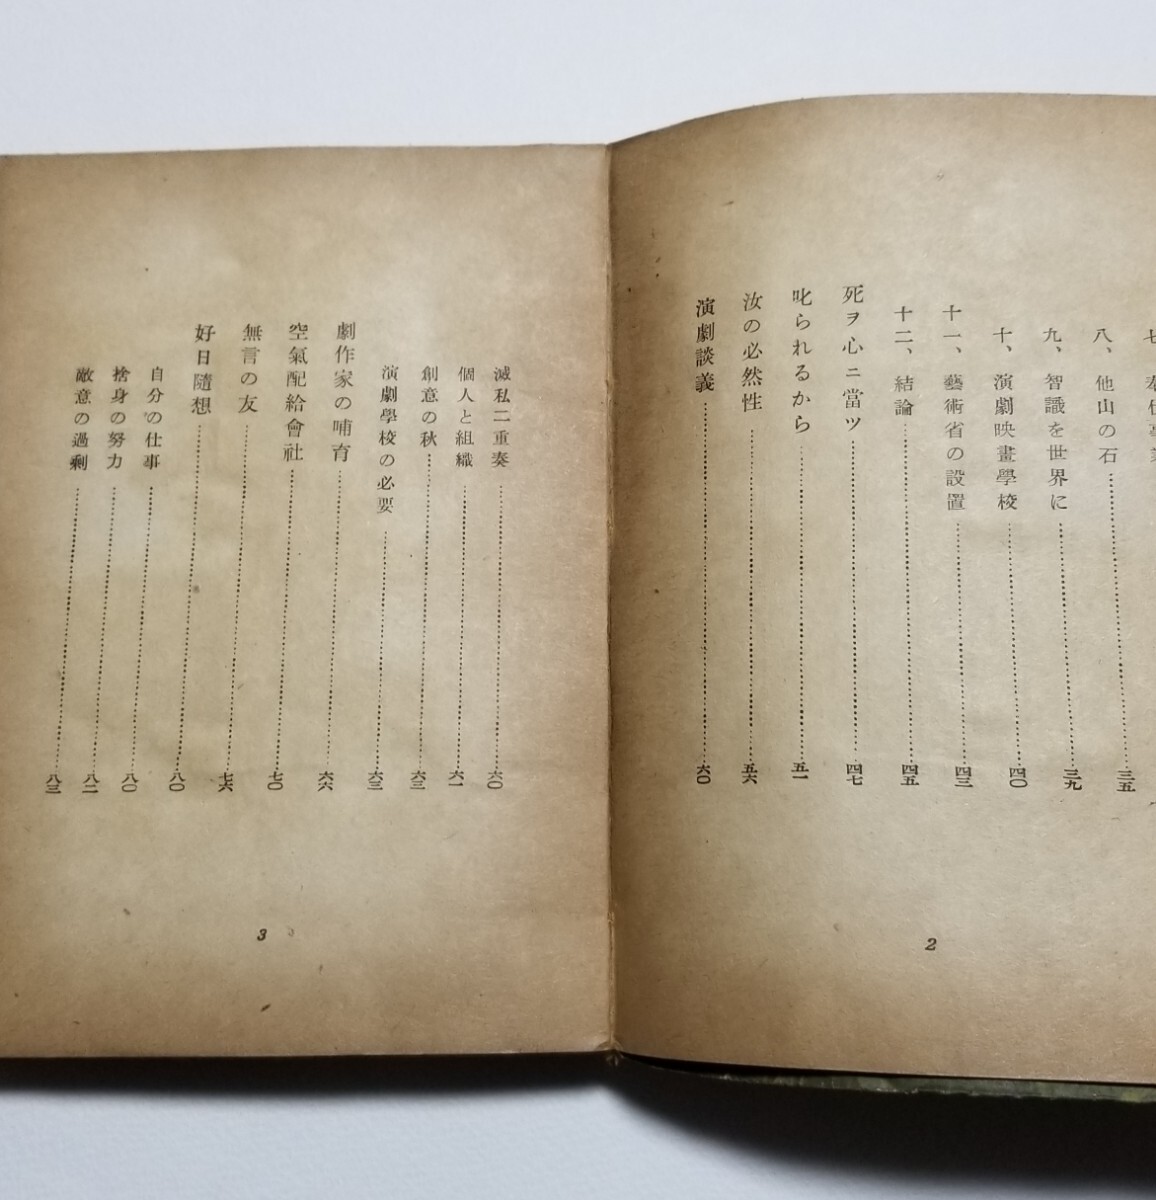 八、他山の石……三五
九、智識を世界に……三九
十、演劇映畫學校……四〇
十一、藝術省の設置……四三
十二、結論……四五
死ヲ心ニ當ツ……四七
叱られるから……五一
汝の必然性……五六
演劇談義……六〇
2
滅私二重奏……六〇
個人と組織……六一
創意の秋……六三
演劇學校の必要……六三
劇作家の哺育……六六
空氣配給會社……七〇
無言の友……七六
好日隨想……八〇
自分の仕事……八〇
捨身の努力……八二
敵意の過剩……八三
3